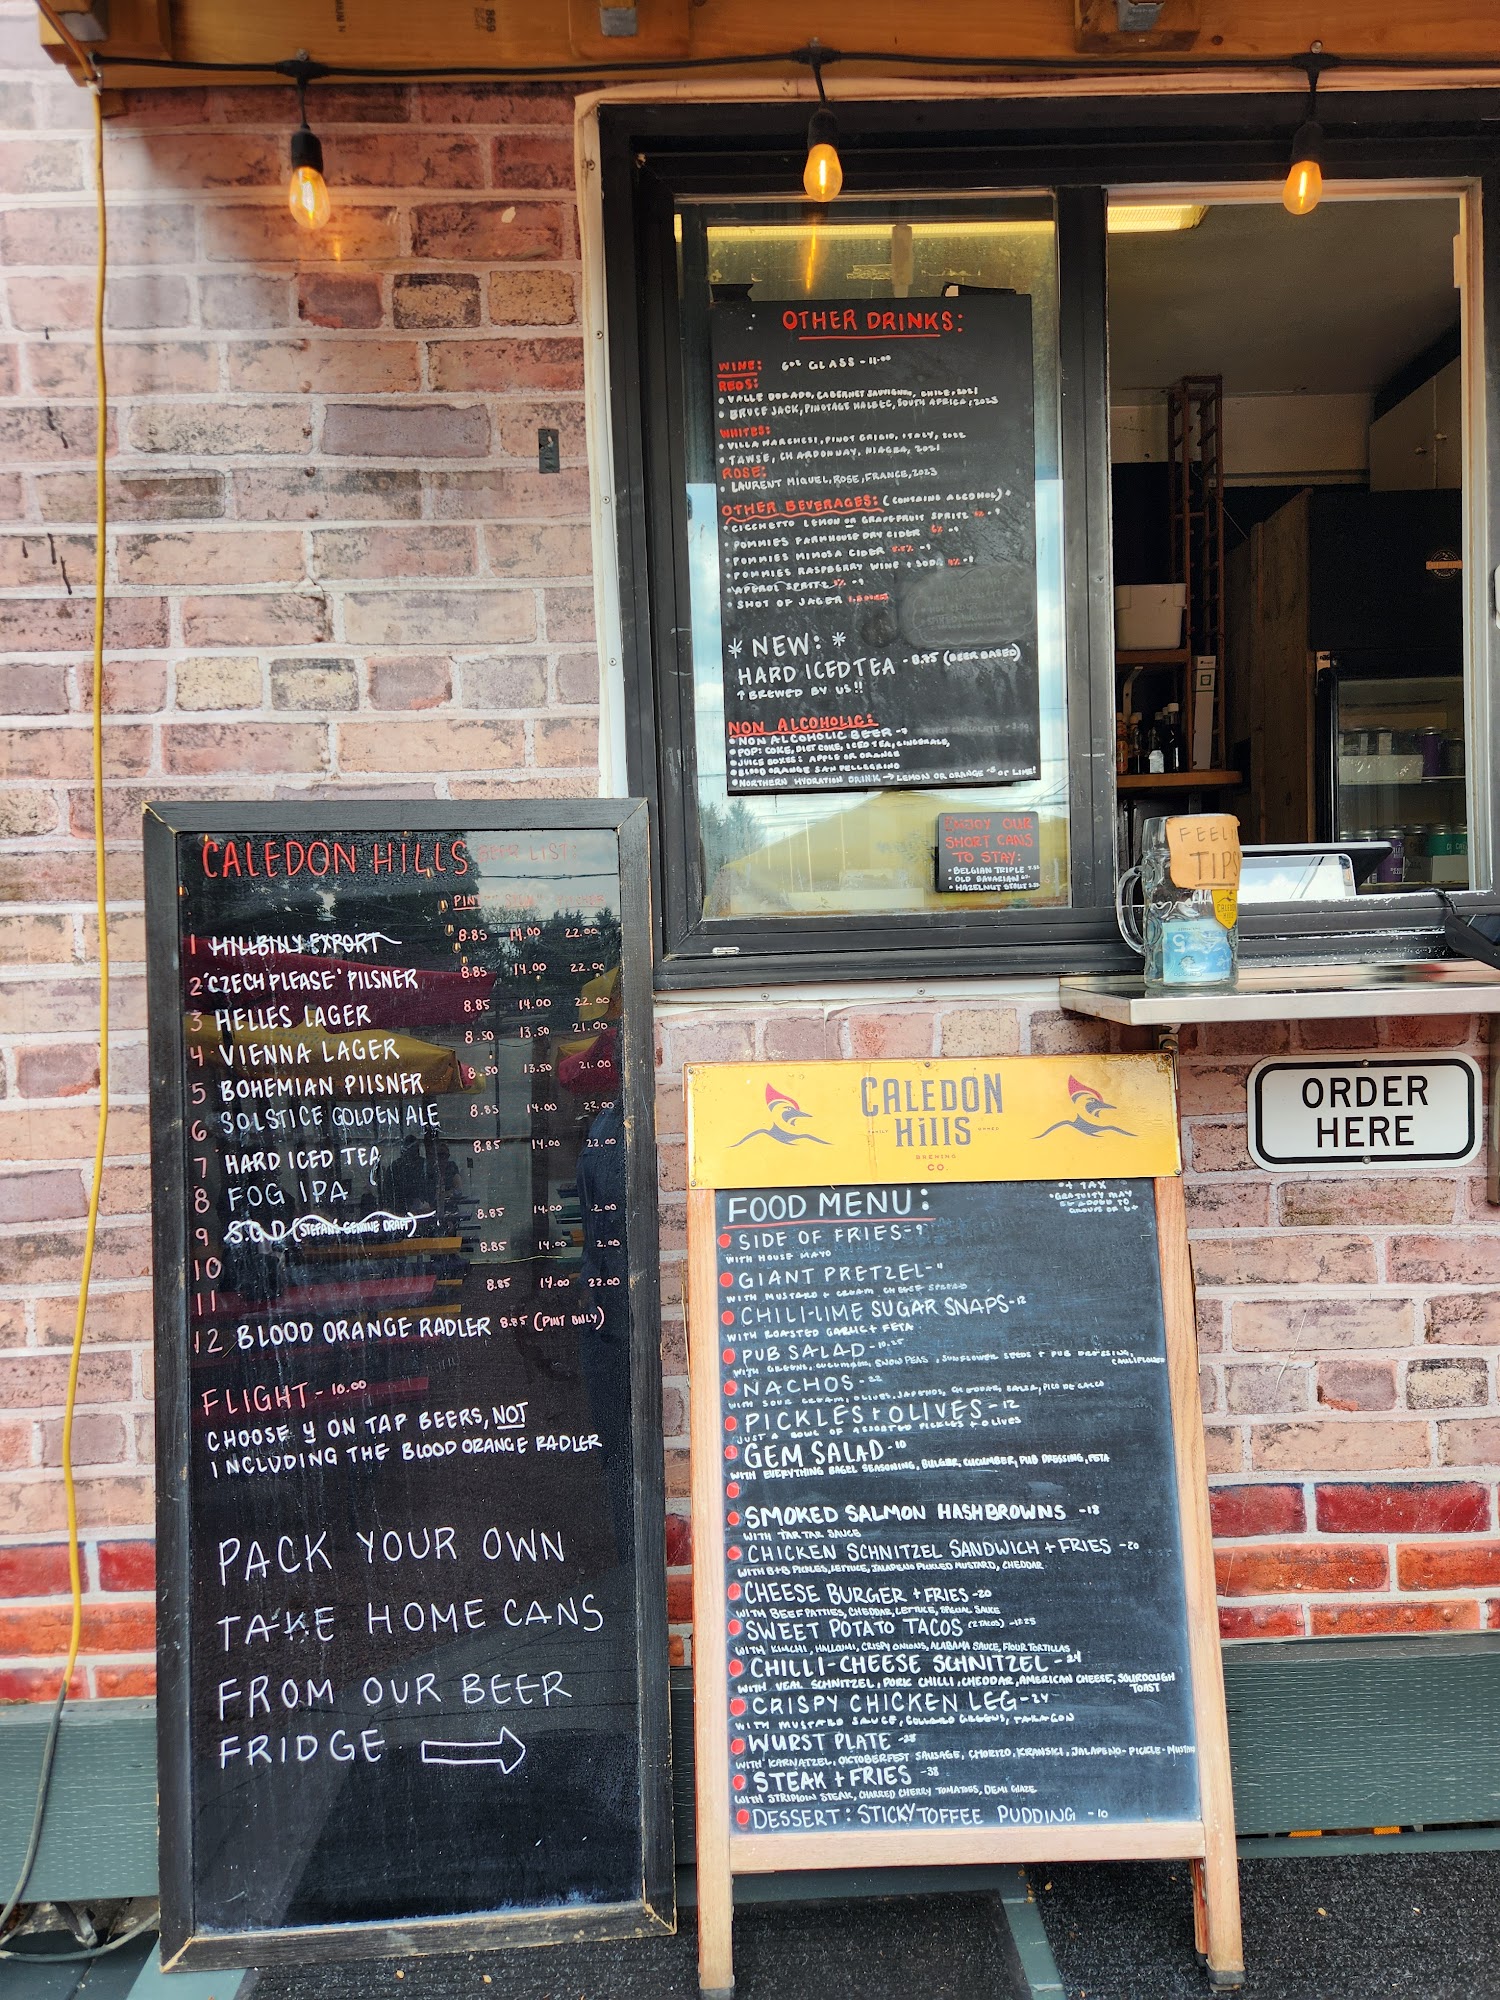 OTHER DRINKS:
WINE: 6oz GLASS - 11.00
REDS:
• VALLE DORADO, CABERNET SAUVIGNON, CHILE, 2021
• BRUCE JACK, PINOTAGE MALBEC, SOUTH AFRICA, 2023
WHITES:
• VILLA MARCHESI, PINOT GRIGIO, ITALY, 2022
• TAWSE, CHARDONNAY, NIAGRA, 2021
ROSE:
• LAURENT MIQUEL, ROSE, FRANCE, 2023
OTHER BEVERAGES: (CONTAINS ALCOHOL)
• CICCHETTO LEMON OR GRAPEFRUIT SPRITZ - 9
• POMMIES FARMHOUSE DRY CIDER 6% - 9
• POMMIES MIMOSA CIDER - 9
• POMMIES RASPBERRY WINE + SODA
• APEROL SPRITZ - 9
• SHOT OF JAGER
* NEW: *
HARD ICED TEA - 8.85 (BEER BASED)
↑ BREWED BY US!!
NON ALCOHOLIC:
• NON ALCOHOLIC BEER - 7
• POP: COKE, DIET COKE, ICED TEA, GINGERALE,
• JUICE BOXES: APPLE OR ORANGE
• BLOOD ORANGE SAN PELLEGRINO
• NORTHERN HYDRATION DRINK → LEMON OR ORANGE OR LIME!
ENJOY OUR
SHORT CANS
TO STAY:
• BELGIAN TRIPLE
• OLD BAVARIAN
• HAZELNUT STOUT
FEELIN
TIPS
CALEDON HILLS BEER LIST:
PINT
1 HILLBILLY EXPORT 8.85 14.00 22.00
2 "CZECH PLEASE" PILSNER 8.85 14.00 22.00
3 HELLES LAGER 8.85 14.00 22.00
4 VIENNA LAGER 8.50 13.50 21.00
5 BOHEMIAN PILSNER 8.50 13.50 21.00
6 SOLSTICE GOLDEN ALE 8.85 14.00 22.00
7 HARD ICED TEA 8.85 14.00 22.00
8 FOG IPA
9 S.G.D (STEFANS GENUINE DRAFT) 8.85 14.00 2.00
10 8.85 14.00 2.00
11 8.85 14.00 22.00
12 BLOOD ORANGE RADLER 8.85 (PINT ONLY)
FLIGHT - 10.00
CHOOSE 4 ON TAP BEERS, NOT
INCLUDING THE BLOOD ORANGE RADLER
PACK YOUR OWN
TAKE HOME CANS
FROM OUR BEER
FRIDGE
ORDER
HERE
CALEDON
HillS
FAMILY OWNED
BREWING
CO.
FOOD MENU:
*+ TAX
*GRATUITY MAY
BE ADDED TO
GROUPS OF 6+
SIDE OF FRIES - 9
WITH HOUSE MAYO
GIANT PRETZEL - 11
WITH MUSTARD + CREAM CHEESE SPREAD
CHILI-LIME SUGAR SNAPS - 12
WITH ROASTED GARLIC + FETA
PUB SALAD - 10.25
WITH GREENS, CUCUMBER, SNOW PEAS, SUNFLOWER SEEDS + PUB DRESSING, CAULIFLOWER
NACHOS - 22
WITH SOUR CREAM, OLIVES, JALAPENOS, CHEDDAR, SALSA, PICO DE GALLO
PICKLES + OLIVES - 12
JUST A BOWL OF ASSORTED PICKLES + OLIVES
GEM SALAD - 10
WITH EVERYTHING BAGEL SEASONING, BULGER, CUCUMBER, PUB DRESSING, FETA
SMOKED SALMON HASHBROWNS - 18
WITH TARTAR SAUCE
CHICKEN SCHNITZEL SANDWICH + FRIES - 20
WITH B+B PICKLES, LETTUCE, JALAPENO PICKLED MUSTARD, CHEDDAR
CHEESE BURGER + FRIES - 20
WITH BEEF PATTIES, CHEDDAR, LETTUCE, SPECIAL SAUCE
SWEET POTATO TACOS (2 TACOS) - 18.25
WITH KIMCHI, HALLOUMI, CRISPY ONIONS, ALABAMA SAUCE, FLOUR TORTILLAS
CHILLI-CHEESE SCHNITZEL - 24
WITH VEAL SCHNITZEL, PORK CHILLI, CHEDDAR, AMERICAN CHEESE, SOURDOUGH TOAST
CRISPY CHICKEN LEG - 24
WITH MUSTARD SAUCE, COLLARD GREENS, TARAGON
WURST PLATE - 25
WITH KARNATZEL, OKTOBERFEST SAUSAGE, CHORIZO, KRANSKI, JALAPENO-PICKLE-MUSTARD
STEAK + FRIES - 38
WITH STRIPLOIN STEAK, CHARRED CHERRY TOMATOES, DEMI GLAZE
DESSERT: STICKY TOFFEE PUDDING - 10